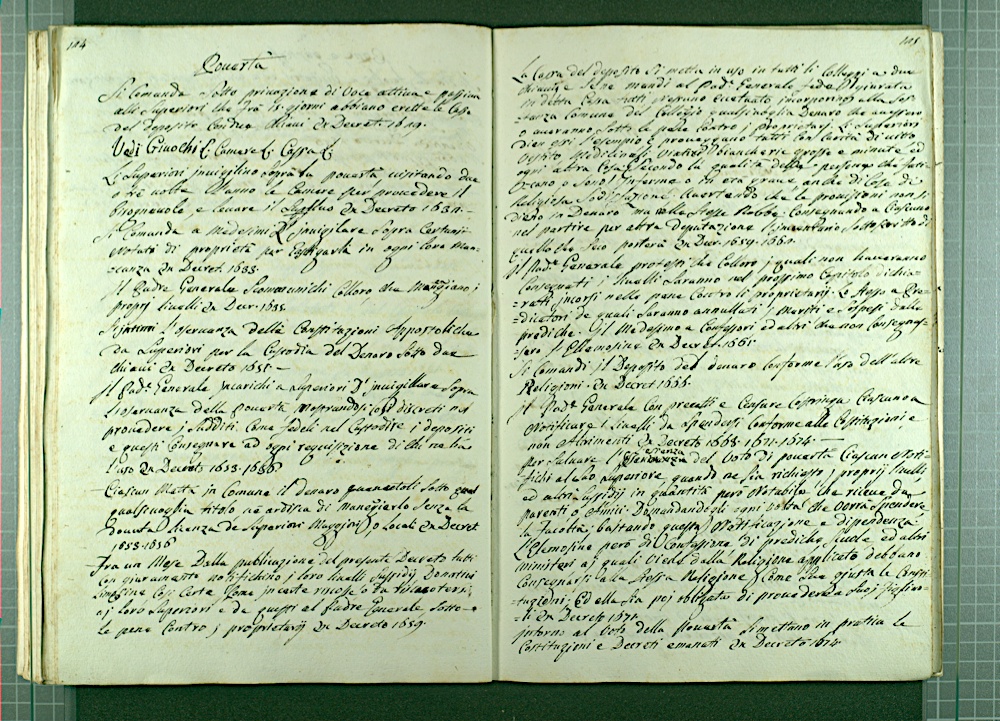 104
Povertà
Si Comanda Sotto privazione di Voce attiva e passiva
alli Superiori che frà 15 giorni abbiano erette le Casse
del deposito Con due Chiavi Da Decret. 1649.
Vedi Giuochi Camere Cassa
Li Superiori invigilino sopra la povertà visitando due
o tre volte l'Anno le Camere per provedere il
Bisognevole, e levare il Superfluo Da Decreto 1632.
Si Comanda a Medesimi d'invigilare Sopra
di proprietà per in ogni loro Man-
canza Da Decret. 1633.
Il Padre Generale Scommunichi Colloro che Mangiano i
proprj livelli Da Decr. 1635.
S'intimi l'osservanza delle Constitazioni Appostoliche
da Superiori per la Custodia del Denaro Sotto due
chiavi Da Decreto 1651 —
Il Pad. Generale incarichi a superiori d'invigillare Sopra
l'osservanza della povertà mostrandosi così discreti nel
provedere i Sudditi Come fedeli nel Custodire i depositi
e questi Consegnare ad ogni requisizione di chi ne ha
l'uso Da Decreto 1653. 1656
Ciascun Metta in Comune il denaro Sotto
qualsivoglia titolo ne ardisca di maneggiarlo Senza la
dovuta licenza de Superiori Maggiori, o Locali Da Decret
1653-1656
Fra un Mese Dalla publicazione del presente Decreto tutti
Con giuramento notifichino i loro livelli Sussidij Donativi
limosine Così Certe Come incerte
a i loro Superiori e da questi al Padre Generale Sotto
le pene Contro i proprietarij Da Decreto 1659.
105
La Cassa del deposito si metta in uso in tutti li Colleggi a due
chiavi e Se ne mandi al Pad. Generale fede Giurata
in detta Cassa tutti
tanza Comune del Collegio qualsivoglia Denaro che avessero
o averanno Sotto le pene Contro i proprietarij. Li Superiori
l'esempio e provengano tutti Con Carità di vitto
Vestito Medicine Viatico biancherie grosse e minute ed
ogni altra Cosa Secondo la qualità delle persone che fati-
cano o Sono Inferme o in età grave anche di Cose di
Religiosa Sodisfazione, avvertendo che le provisioni non si
dieno in Denaro ma nelle stesse Robbe Consegnando a Ciascuno
nel partire per altra deputazione l'inventario Sottoscritto di
quello che Seco porterà Da Decr. 1659-1662.
Il Pad. Generale protesti che Colloro i quali non haveranno
Consegnati i livelli Saranno nel prossimo Capitolo dichia-
=rati incorsi nelle pene Contro li proprietarij. Lo stesso a Pre-
=dicatori de quali Saranno annullati i Meriti e Sospesi dalle
prediche. Il Medesimo a Confessori ed altri che non Consegnas-
=sero l'Ellemosine Da Decret. 1661.
Si Comandi il Deposito del denaro Conforme l'uso dell'altre
Religioni. Da Decret 1665.
Il Pad. Generale Con precetti e Censure Costringa Ciascuno a
Notificare i livelli da Spendersi Conforme alle Costituzioni, e
non altrimenti Da Decreto 1668. 1671. 1674. —
Per Salvare l'Essenza del Voto di povertà Ciascun Noti-
fichi al suo Superiore quando ne Sia richiesto i proprij livelli
ed altri in quantità però Notabile che riceve da
parenti o Amici Domandandogli ogni volta che vorrà Spendere
la facoltà, bastando questa Notificazione e dipendenza
L'Elemosine però di Confessione di prediche Scuole ed altri
ministeri a i quali Viene dalla Religione applicato debbano
Consegnarsi alla Stessa Religione, Come Sue giusta le Consti-
=tuzioni. Ed ella Sia poi obligata di provedere a Suoi
Da Decreto 1671.
Intorno al Voto della Povertà Si mettano in pratica le
Costituzioni e Decreti emanati Da Decreto 1674